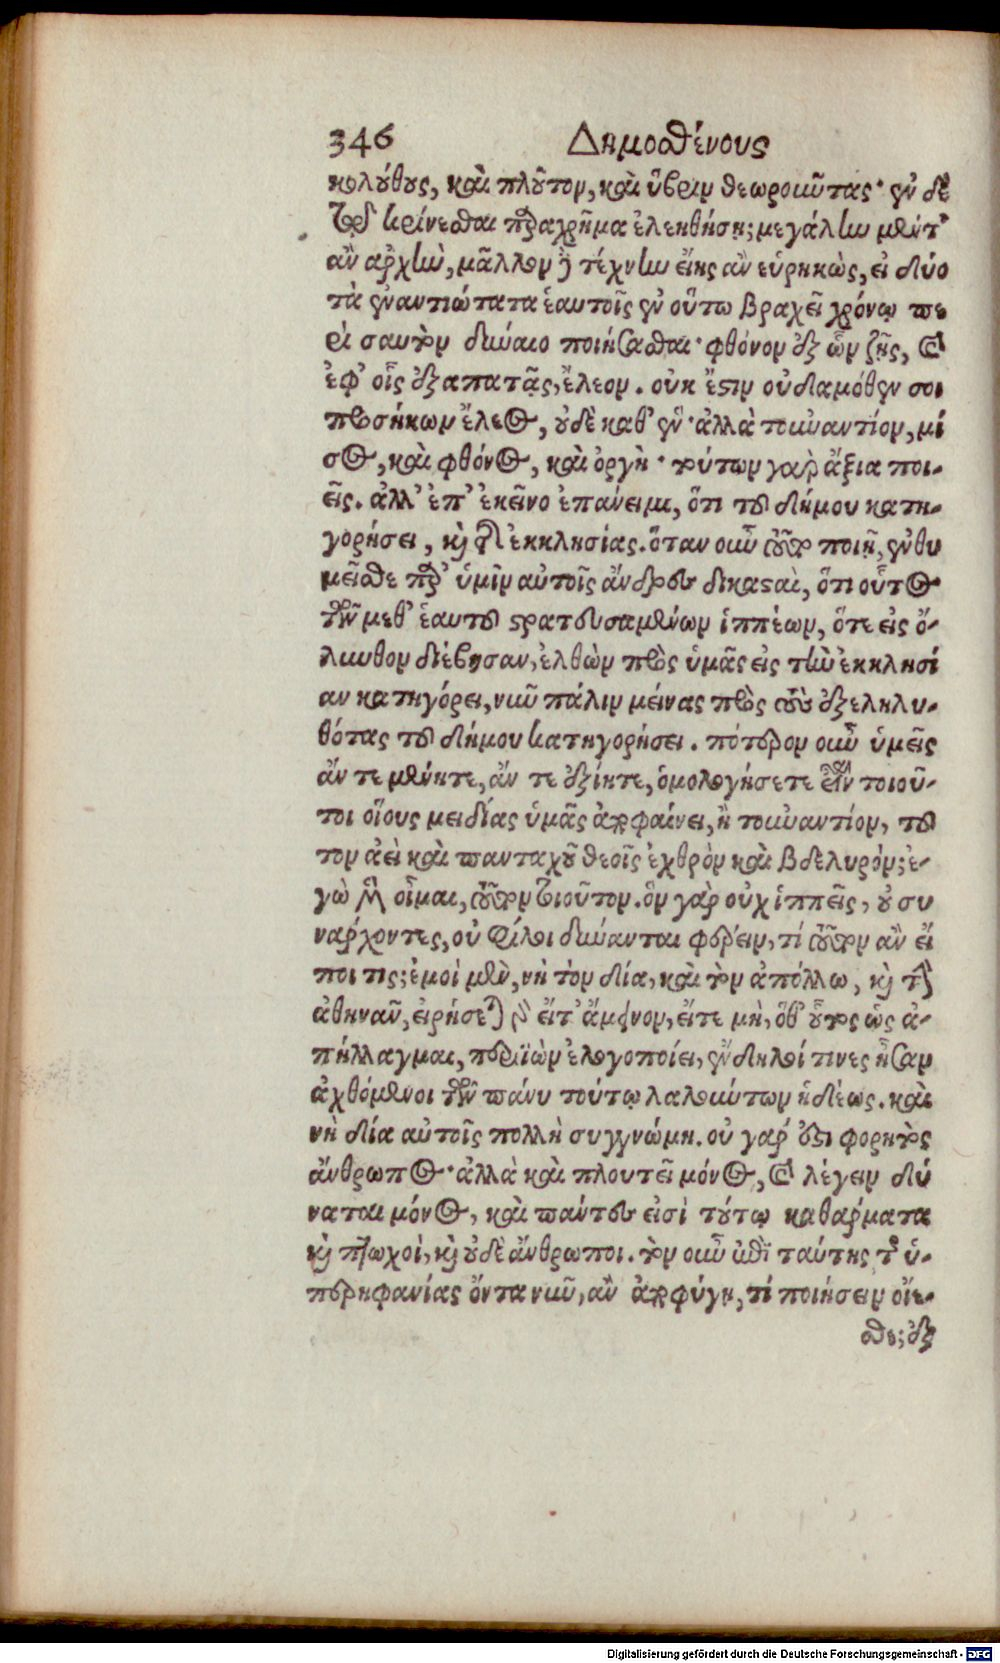 346 Δημοσθένους
κολούθους, καὶ πλοῦτον, καὶ ὕβριν θεωροῦντας· ἐν δὲ
τῷ κρίνεσθαι παραχρῆμα ἐλεηθήσῃ; μεγάλην μέντ'
ἂν ἀρχὴν, μᾶλλον δὲ τέχνην εἴης ἂν εὑρηκὼς, εἰ δύο
τὰ ἐναντιώτατα ἑαυτοῖς ἐν οὕτω βραχεῖ χρόνῳ πε
ρὶ σαυτὸν δύναιο ποιήσασθαι· φθόνον ἐξ ὧν ζῇς, καὶ
ἐφ' οἷς ἐξαπατᾷς, ἔλεον. οὐκ ἔστιν οὐδαμόθεν σοι
προσήκων ἔλεος, οὐδὲ καθ' ἕν· ἀλλὰ τοὐναντίον, μῖ
σος, καὶ φθόνος, καὶ ὀργὴ· τούτων γὰρ ἄξια ποι-
εῖς. ἀλλ' ἐπ' ἐκεῖνο ἐπάνειμι, ὅτι τοῦ δήμου κατη-
γορήσει, καὶ τῆς ἐκκλησίας. ὅταν οὖν τοῦτο ποιῇ, ἐνθυ
μεῖσθε παρ' ὑμῖν αὐτοῖς ἄνδρες δικασταὶ, ὅτι οὗτος
τῶν μεθ' ἑαυτοῦ στρατευσαμένων ἱππέων, ὅτε εἰς ὄ-
λυνθον διέβησαν, ἐλθὼν πρὸς ὑμᾶς εἰς τὴν ἐκκλησί
αν κατηγόρει, νῦν πάλιν μείνας πρὸς τοὺς ἐξεληλυ-
θότας τοῦ δήμου κατηγορήσει. πότερον οὖν ὑμεῖς
ἄν τε μένητε, ἄν τε ἐξίητε, ὁμολογήσετε εἶναι τοιοῦ-
τοι οἵους μειδίας ὑμᾶς ἀποφαίνει, ἢ τοὐναντίον, τοῦ
τον ἀεὶ καὶ πανταχοῦ θεοῖς ἐχθρὸν καὶ βδελυρόν; ἐ-
γὼ μὲν οἶμαι, τοῦτον τοιοῦτον. ὃν γὰρ οὐχ ἱππεῖς, οὐ συ
νάρχοντες, οὐ φίλοι δύνανται φέρειν, τί τοῦτον ἂν εἴ
ποι τις; ἐμοὶ μὲν, νὴ τὸν δία, καὶ τὸν ἀπόλλω, καὶ τὴν
ἀθηνᾶν, εἰρήσεται γὰρ εἴτ' ἄμεινον, εἴτε μὴ, ὅθ' οὗτος ὡς ἀ-
πήλλαγμαι, περιϊὼν ἐλογοποίει, ἔνδηλοί τινες ἦσαν
ἀχθόμενοι τῶν πάνυ τούτῳ λαλούντων ἡδέως. καὶ
νὴ δία αὐτοῖς πολλὴ συγγνώμη. οὐ γάρ ἐστι φορητὸς
ἅνθρωπος· ἀλλὰ καὶ πλουτεῖ μόνος, καὶ λέγειν δύ
ναται μόνος, καὶ πάντες εἰσὶ τούτῳ καθάρματα
καὶ πτωχοί, καὶ οὐδὲ ἄνθρωποι. τὸν οὖν ἐπὶ ταύτης τῆς ὑ-
περηφανίας ὄντα νῦν, ἂν ἀποφύγῃ, τί ποιήσειν οἴε-
σθε; ἐξ
Digitalisierung gefördert durch die Deutsche Forschungsgemeinschaft - DFG